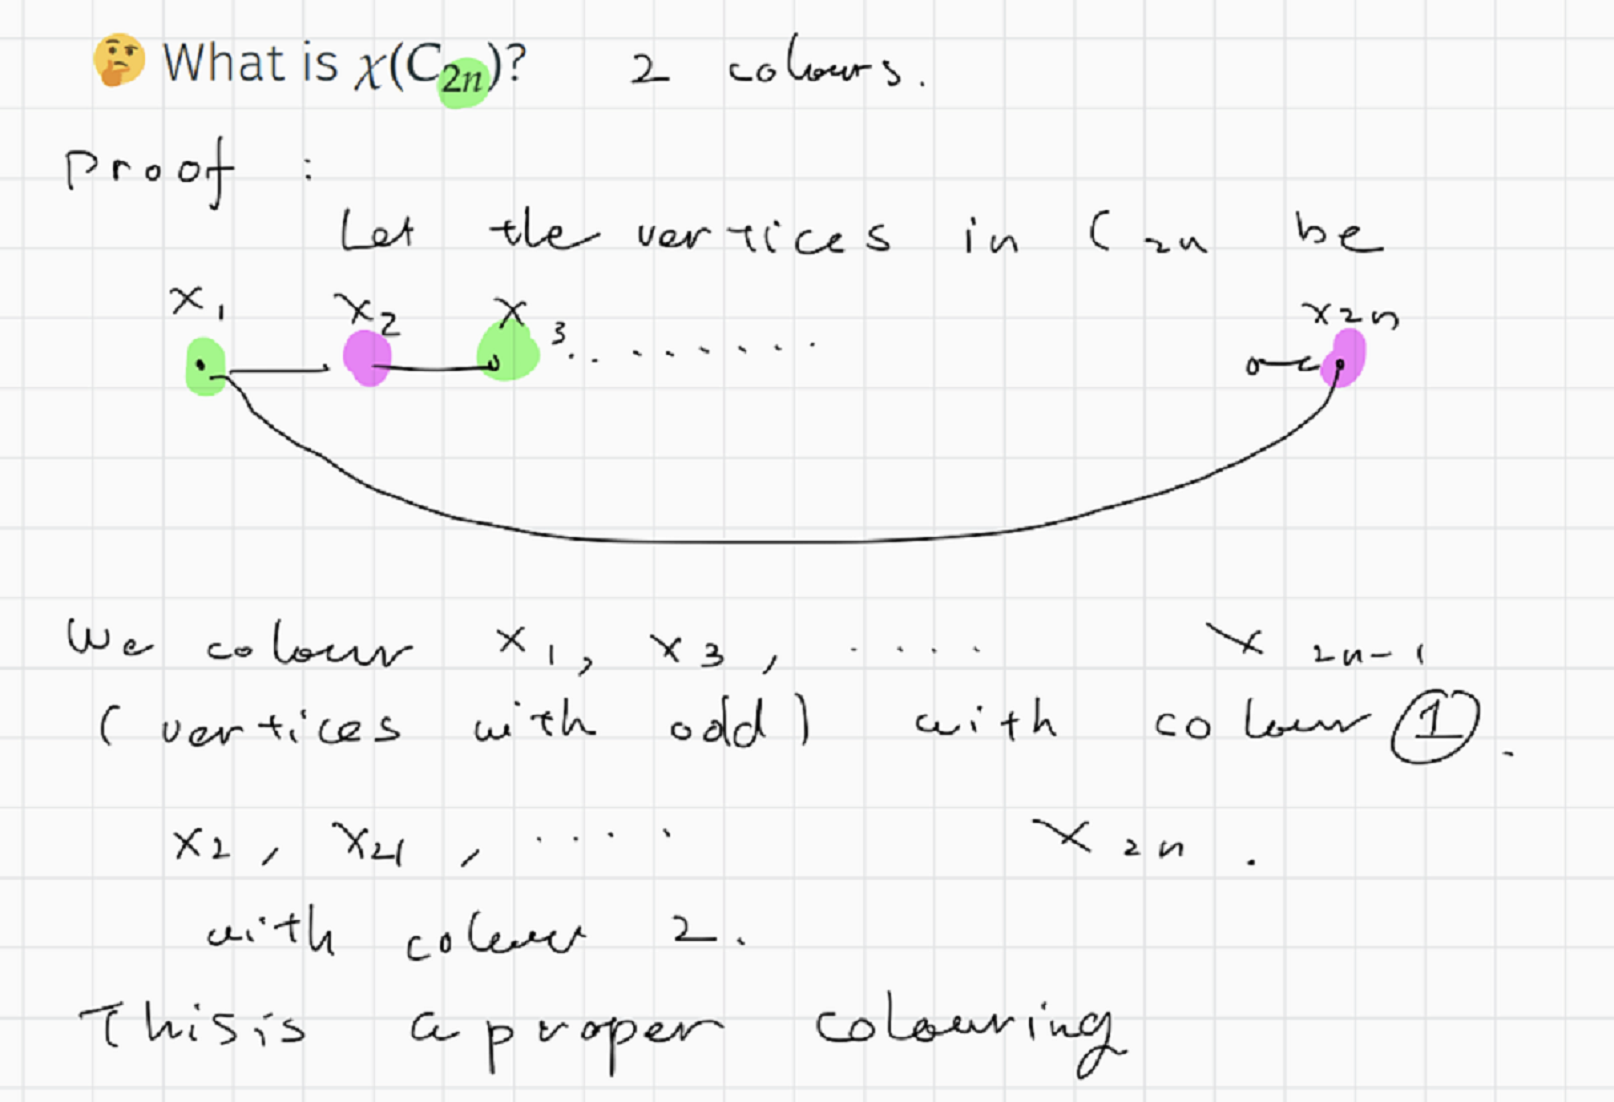 🤔 What is χ(C₂ₙ)? 2 colours.
Proof :
Let the vertices in C₂ₙ be
x₁ x₂ x₃ ........ x₂ₙ
We colour x₁, x₃, .... x₂ₙ₋₁
(vertices with odd) with colour ①.
x₂, x₄, .... x₂ₙ.
with colour 2.
This is a proper colouring